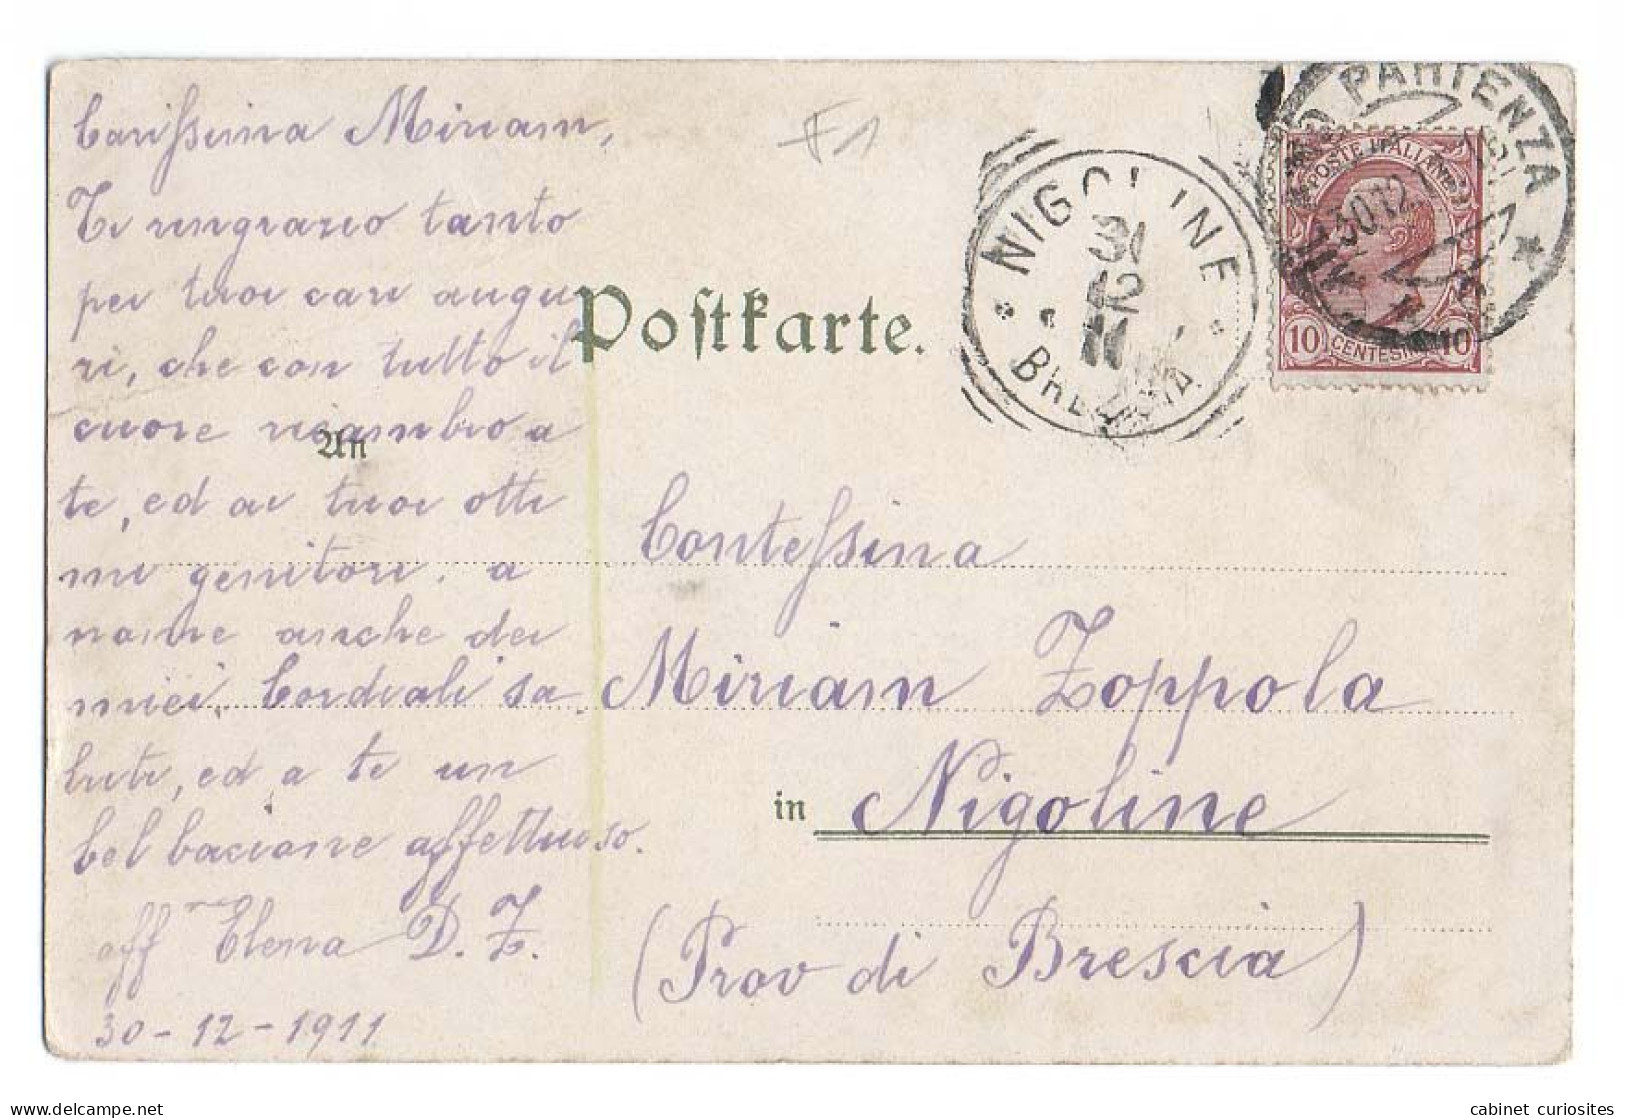 Carissima Miriam,
Ti ringrazio tanto
pei tuoi cari augu
ri, che con tutto il
cuore ricambio a
te, ed ai tuoi otti
mi genitori. a
nome anche dei
miei. Cordiali sa
luti, ed a te un
bel bacione affettuoso.
aff Elena D. Z.
30-12-1911
F1
Postkarte.
An
NIGOLINE
31
12
11
BRESCIA
PARTENZA
30 12
POSTE ITALIANE
10 CENTESIMI 10
Contessina
Miriam Zoppola
in Nigoline
(Prov di Brescia)
cabinet curiosites